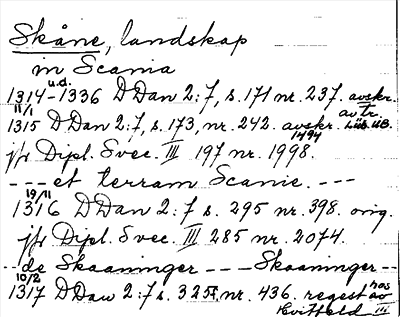 Skåne, landskap
in Scania
u.d.
1314-1336 DDan 2:7, s. 171 nr. 237. avskr.
11/1 av tr.
1315 DDan 2:7, s. 173, nr. 242. avskr. Lüb. UB.
1494
jfr Dipl. Svec. III 197 nr. 1998.
--- et terram Scanie. ---
19/11
1316 DDan 2:7 s. 295 nr. 398. orig.
jfr Dipl. Svec. III 285 nr. 2074.
-- de Skaaninger --- Skaaninger --
10/2 hos
1317 DDan 2:7 s. 325 nr. 436. regest av
Hvitfeld III